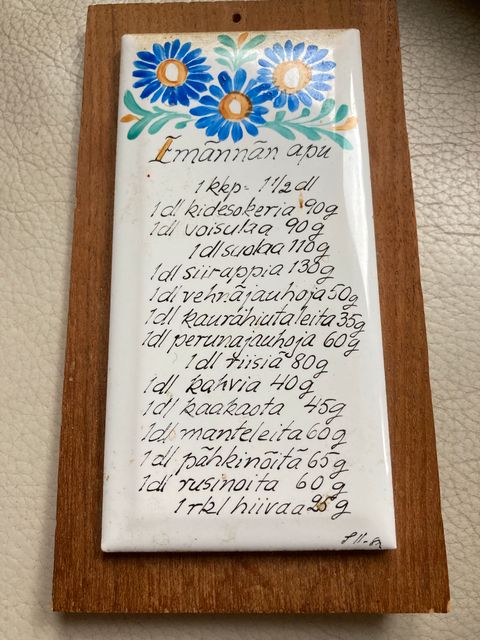 Emännän apu
1 kkp = 1 1/2 dl
1 dl kidesokeria 90g
1 dl voisulaa 90g
1 dl suolaa 110g
1 dl siirappia 130g
1 dl vehnäjauhoja 50g
1 dl kaurahiutaleita 35g
1 dl perunajauhoja 60g
1 dl riisiä 80g
1 dl kahvia 40g
1 dl kaakaota 45g
1 dl manteleita 60g
1 dl pähkinöitä 65g
1 dl rusinoita 60g
1 rkl hiivaa 25g